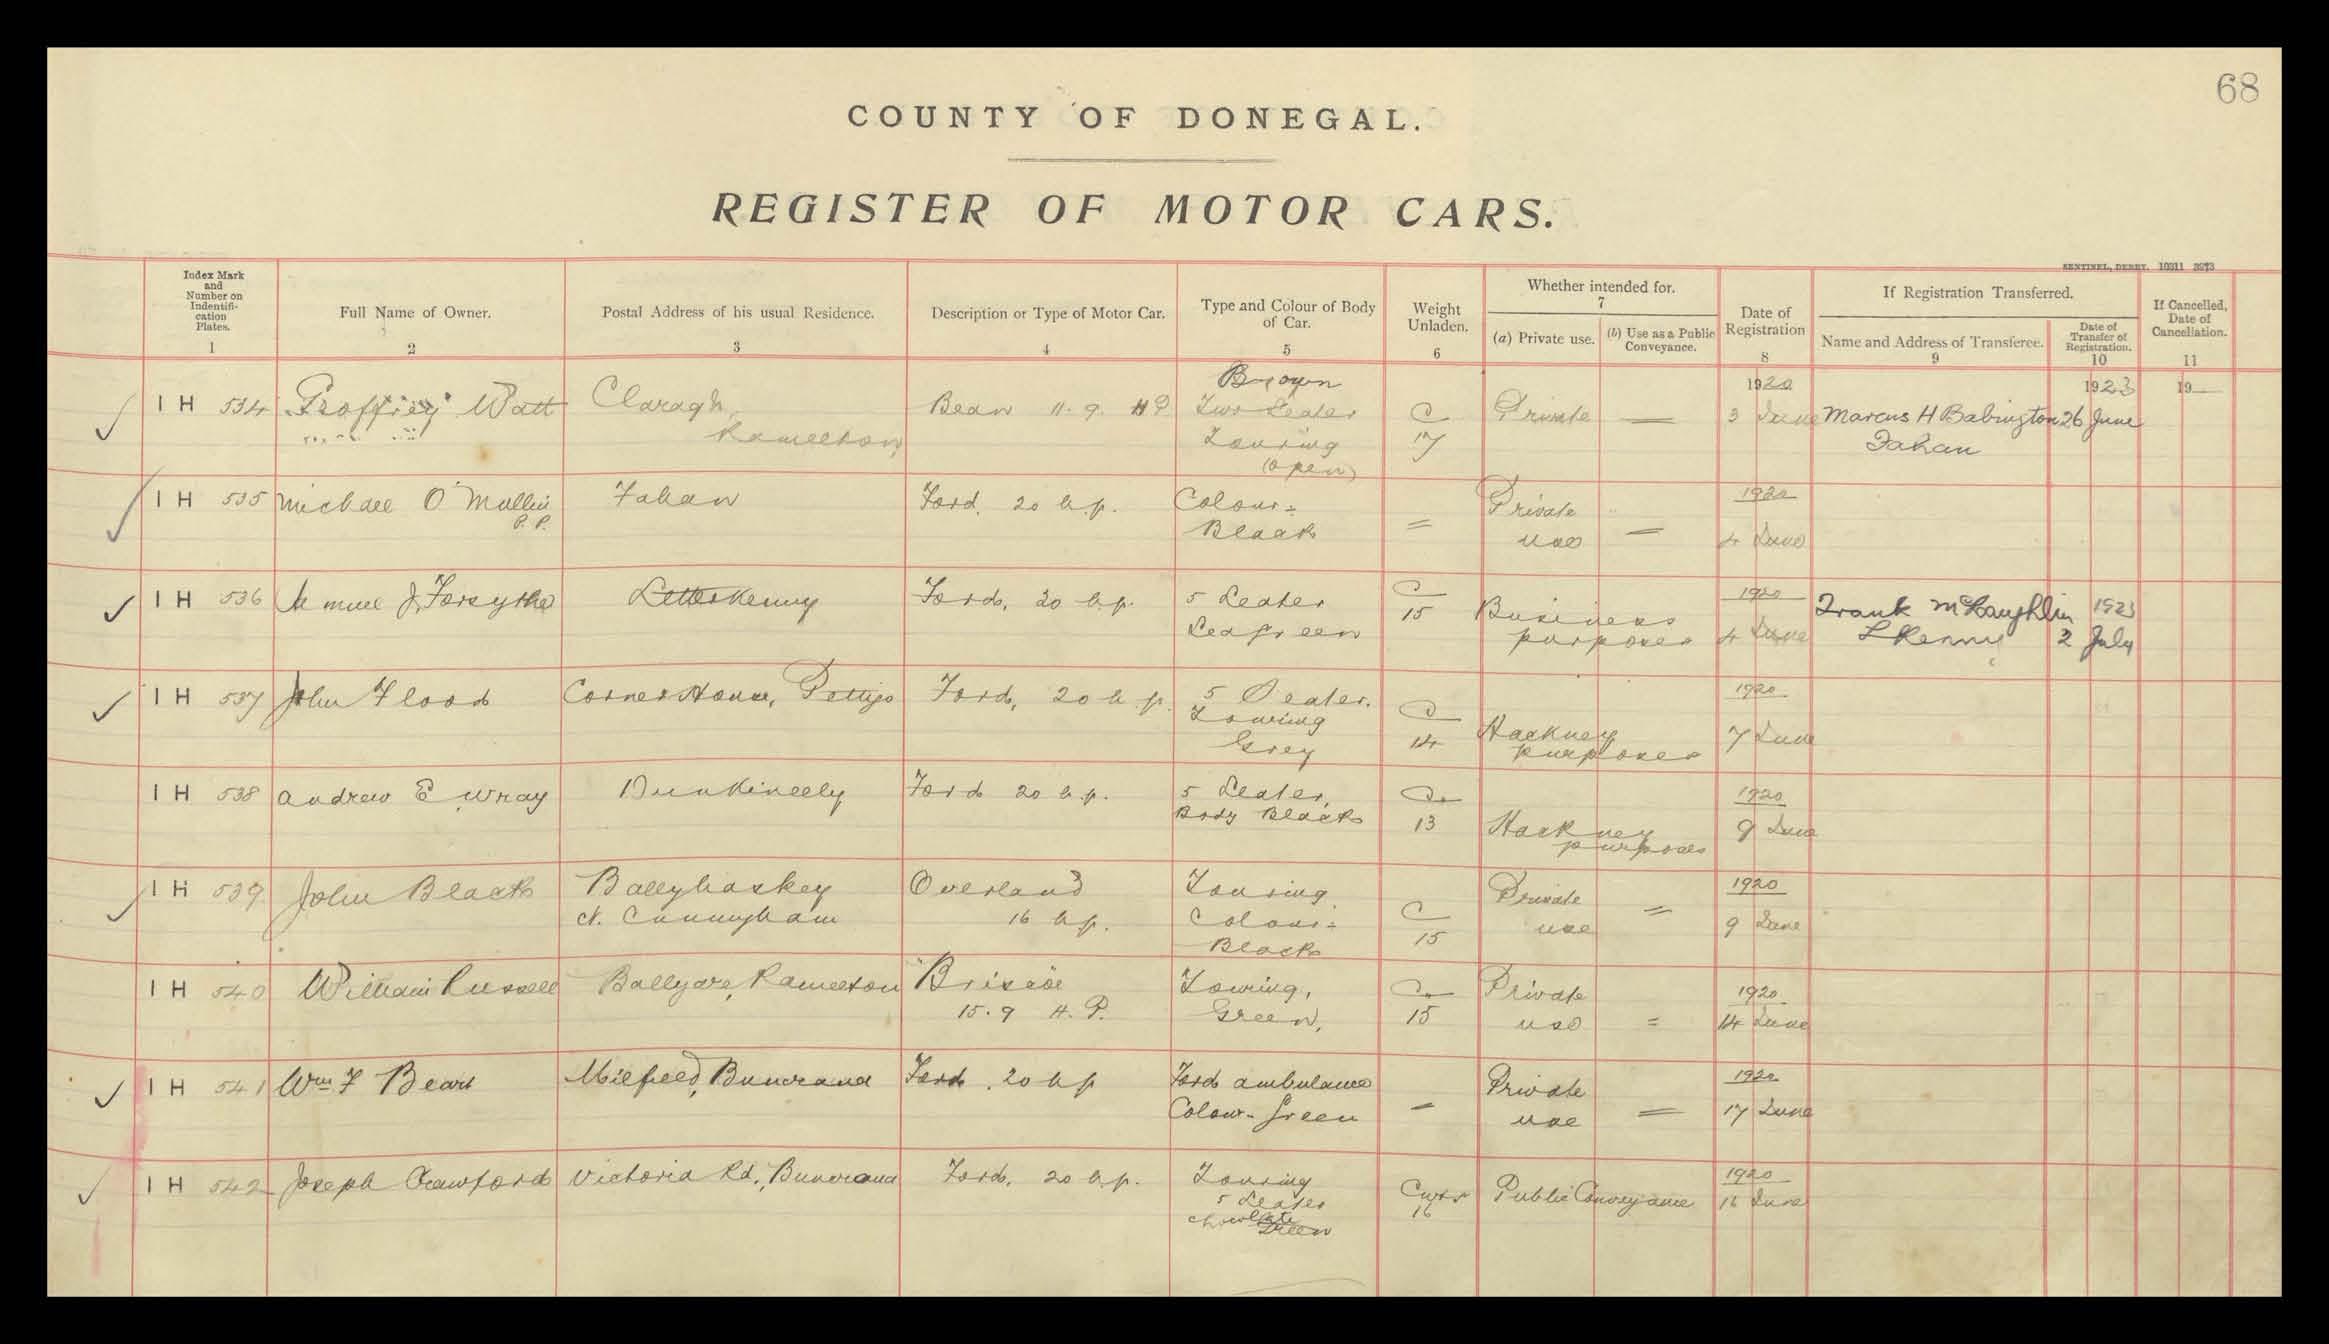 68
COUNTY OF DONEGAL.
REGISTER OF MOTOR CARS.
SENTINEL, DERRY. 10311 3973
Index Mark and Number on Indentifi-cation Plates. 1
Full Name of Owner. 2
Postal Address of his usual Residence. 3
Description or Type of Motor Car. 4
Type and Colour of Body of Car. 5
Weight Unladen. 6
Whether intended for. 7
(a) Private use.
(b) Use as a Public Conveyance.
Date of Registration 8
If Registration Transferred.
Name and Address of Transferee. 9
Date of Transfer of Registration. 10
If Cancelled, Date of Cancellation. 11
IH 534 Geoffrey Watt Claragh, Ramelton Bean 11.9 HP Brown Two Seater Touring (open) C 17 Private — 1920 3 June Marcus H Babington Fahan 1923 26 June 19
IH 535 Michael O'Mullin P.P. Fahan Ford, 20 h.p. Colour:- Black = Private use — 1920 4 June
IH 536 Samuel J. Forsythe Letterkenny Ford, 20 h.p. 5 Seater Sea green C 15 Business purposes 1920 4 June Frank McLaughlin LKenny 1923 2 July
IH 537 John Flood Corner House, Pettigo Ford, 20 h.p. 5 Seater. Touring Grey C 14 Hackney purposes 1920 7 June
IH 538 Andrew E Wray Dunkineely Ford 20 h.p. 5 Seater, Body Black C. 13 Hackney purposes 1920 9 June
IH 539 John Black Ballyhaskey Nt. Cunningham Overland 16 h.p. Touring. Colour:- Black C 15 Private use = 1920 9 June
IH 540 William Russell Ballyare, Ramelton Briscoe 15.9 H.P. Touring, Green, C. 15 Private use = 1920 14 June
IH 541 Wm F Beart Milfield, Buncrana Ford, 20 h.p Ford ambulance Colour- Green - Private use = 1920 17 June
IH 542 Joseph Crawford Victoria Rd., Buncrana Ford, 20 h.p. Touring 5 Seater chocolate Green Cwts 16 Public Conveyance 1920 16 June